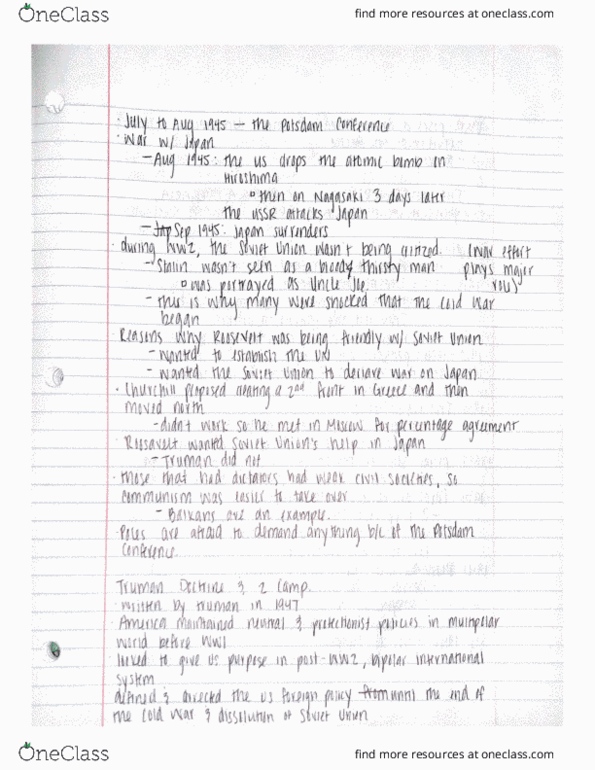 OneClass
find more resources at oneclass.com
· July to Aug 1945 – the Potsdam Conference
· War w/ Japan
– Aug 1945: the US drops the atomic bomb on
Hiroshima
° then on Nagasaki 3 days later
the USSR attacks Japan
– Sep 1945: Japan surrenders
· during WW2, the Soviet Union wasn't being (war effort
– Stalin wasn't seen as a bloody thirsty man plays major
° was portrayed as Uncle Joe. role)
– this is why many were shocked that the Cold War
began
Reasons why Roosevelt was being friendly w/ Soviet Union
– wanted to establish the UN
– wanted the Soviet Union to declare war on Japan
· Churchill proposed creating a 2nd front in Greece and then
moved north
– didn't work so he met in Moscow for percentage agreement
· Roosevelt wanted Soviet Union's help in Japan
– Truman did not
· those that had dictators had weak civil societies, so
communism was easier to take over
– Balkans are an example.
· Poles are afraid to demand anything b/c of the Potsdam
Conference
Truman Doctrine & 2 Camp.
· written by Truman in 1947
· America maintained neutral & protectionist policies in multipolar
world before WW1
· to give US purpose in post-WW2, bipolar international
system
defined & directed the US foreign policy until the end of
the Cold War & dissolution of Soviet Union
OneClass
find more resources at oneclass.com